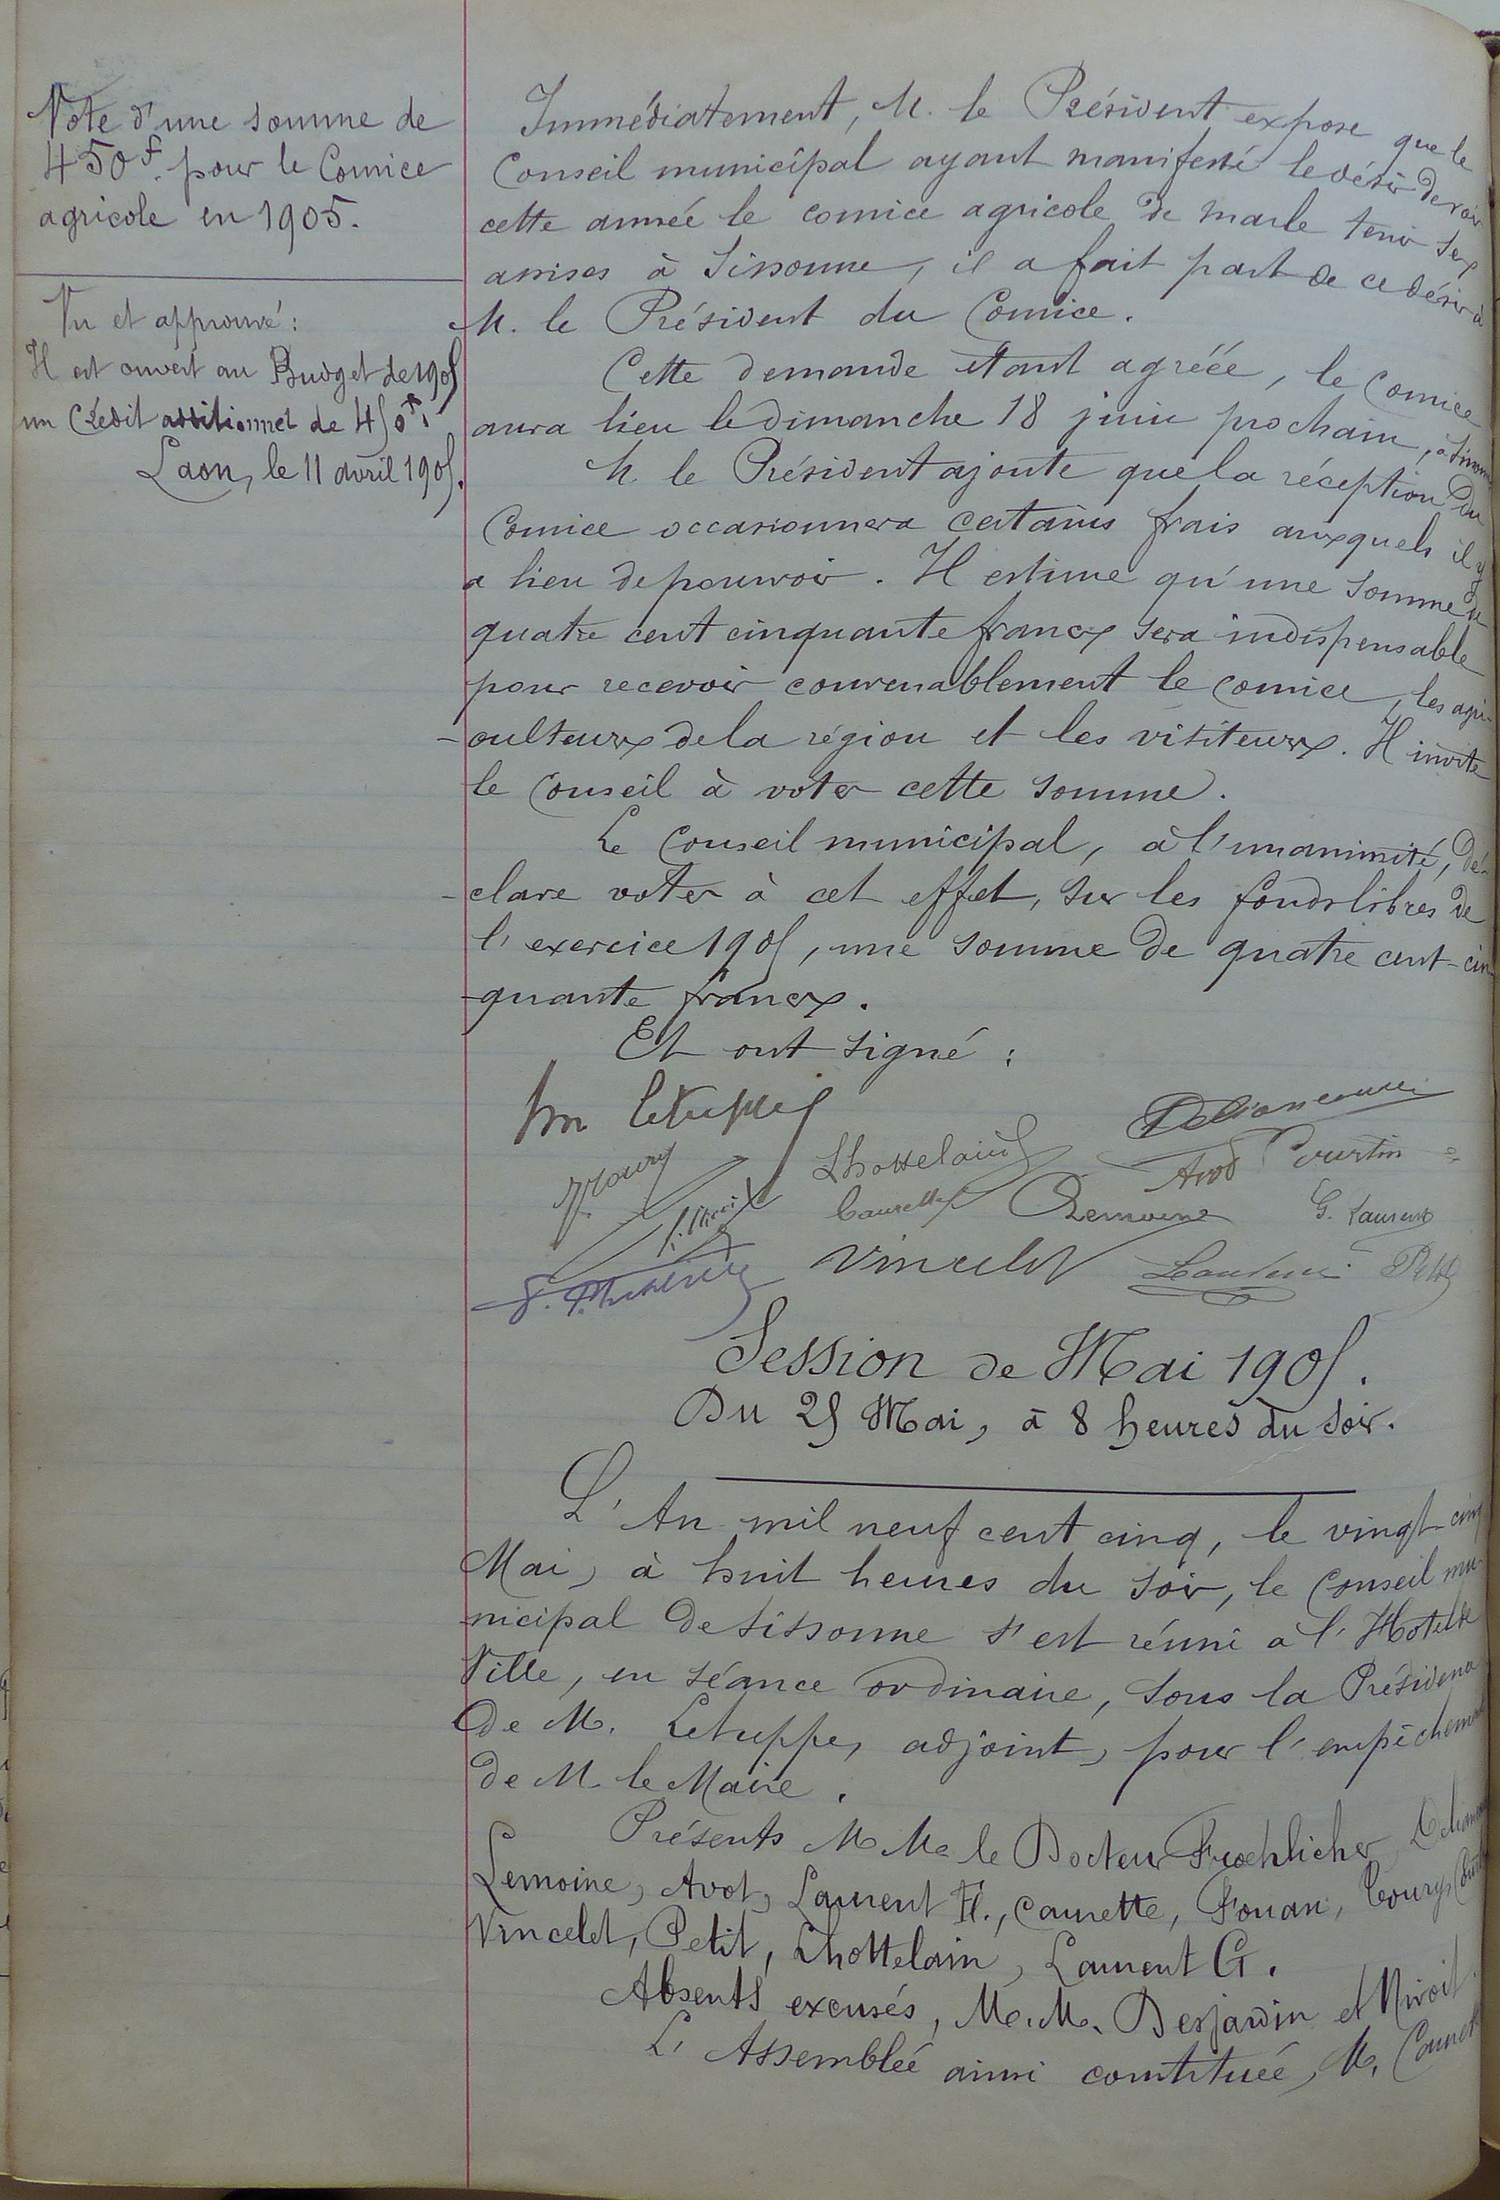 Vote d'une somme de
450f. pour le Comice
agricole en 1905.
Vu et approuvé :
Il est ouvert au Budget de 1905
un Crédit additionnel de 450f.
Laon, le 11 avril 1905.
Immédiatement, M. le Président expose que le
Conseil municipal ayant manifesté le désir de voir
cette année le comice agricole de Marle tenir ses
assises à Sissonne, il a fait part de ce désir à
M. le Président du Comice.
Cette demande étant agréée, le Comice
aura lieu le dimanche 18 juin prochain, à Sissonne
M. le Président ajoute que la réception du
Comice occasionnera certains frais auxquels il y
a lieu de pourvoir. Il estime qu'une somme de
quatre cent cinquante francs sera indispensable
pour recevoir convenablement le comice, les agri-
-culteurs de la région et les visiteurs. Il invite
le Conseil à voter cette somme.
Le Conseil municipal, à l'unanimité, dé-
-clare voter à cet effet, sur les fonds libres de
l'exercice 1905, une somme de quatre cent-cin-
-quante francs.
Et ont signé :
Letuppe
Lhottelain
Avot Courtin
Caurette Lemoine G. Laurent
Vincelet Petit
Session de Mai 1905.
Du 25 Mai, à 8 heures du soir.
L'An mil neuf cent cinq, le vingt-cinq
Mai, à huit heures du soir, le Conseil mu-
-nicipal de Sissonne s'est réuni à l'Hôtel de
Ville, en séance ordinaire, sous la Présidence
de M. Letuppe, adjoint, pour l'empêchement
de M. le Maire.
Présents M.M. le Docteur Froehlicher,
Lemoine, Avot, Laurent H., Caurette, Fouan,
Vincelet, Petit, Lhottelain, Laurent G.
Absents excusés, M.M. Desjardin et Miroit.
L'Assemblée ainsi constituée, M. Caurette